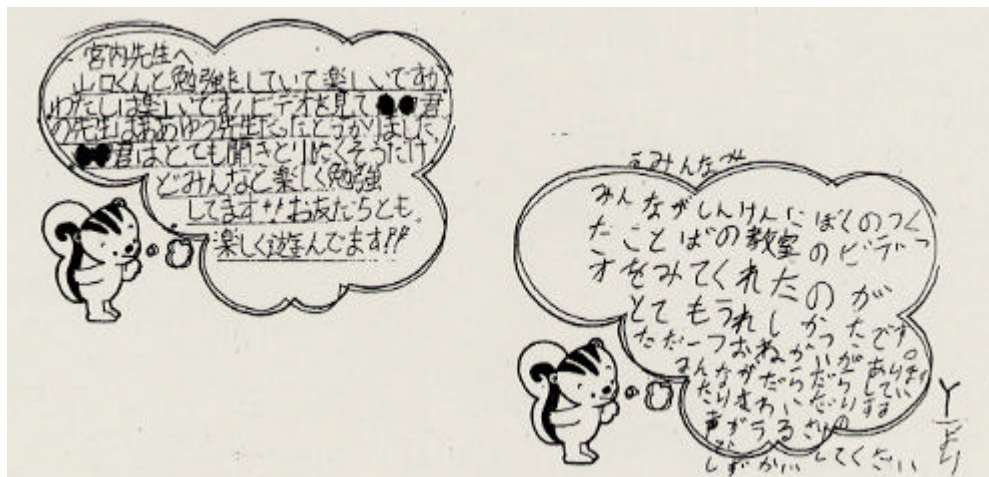 宮内先生へ
山口くんと勉強をしていて楽しいですか
わたしは楽しいです!!ビデオを見て●●君
の先生はあめゆう先生だったとうかりました
●●君はとても聞きとりにくそうだけ
どみんなと楽しく勉強
してます!!お友だちとも
楽しく遊んでます!!
みんなが
みんながしんけんにぼくのつくっ
たことばの教室のビデ
オをみてくれたのが
とてもうれしかったです。
ただ一つおねがいがあります
みんながだらだらして
声がうるさい
しずかにしてください
Yより